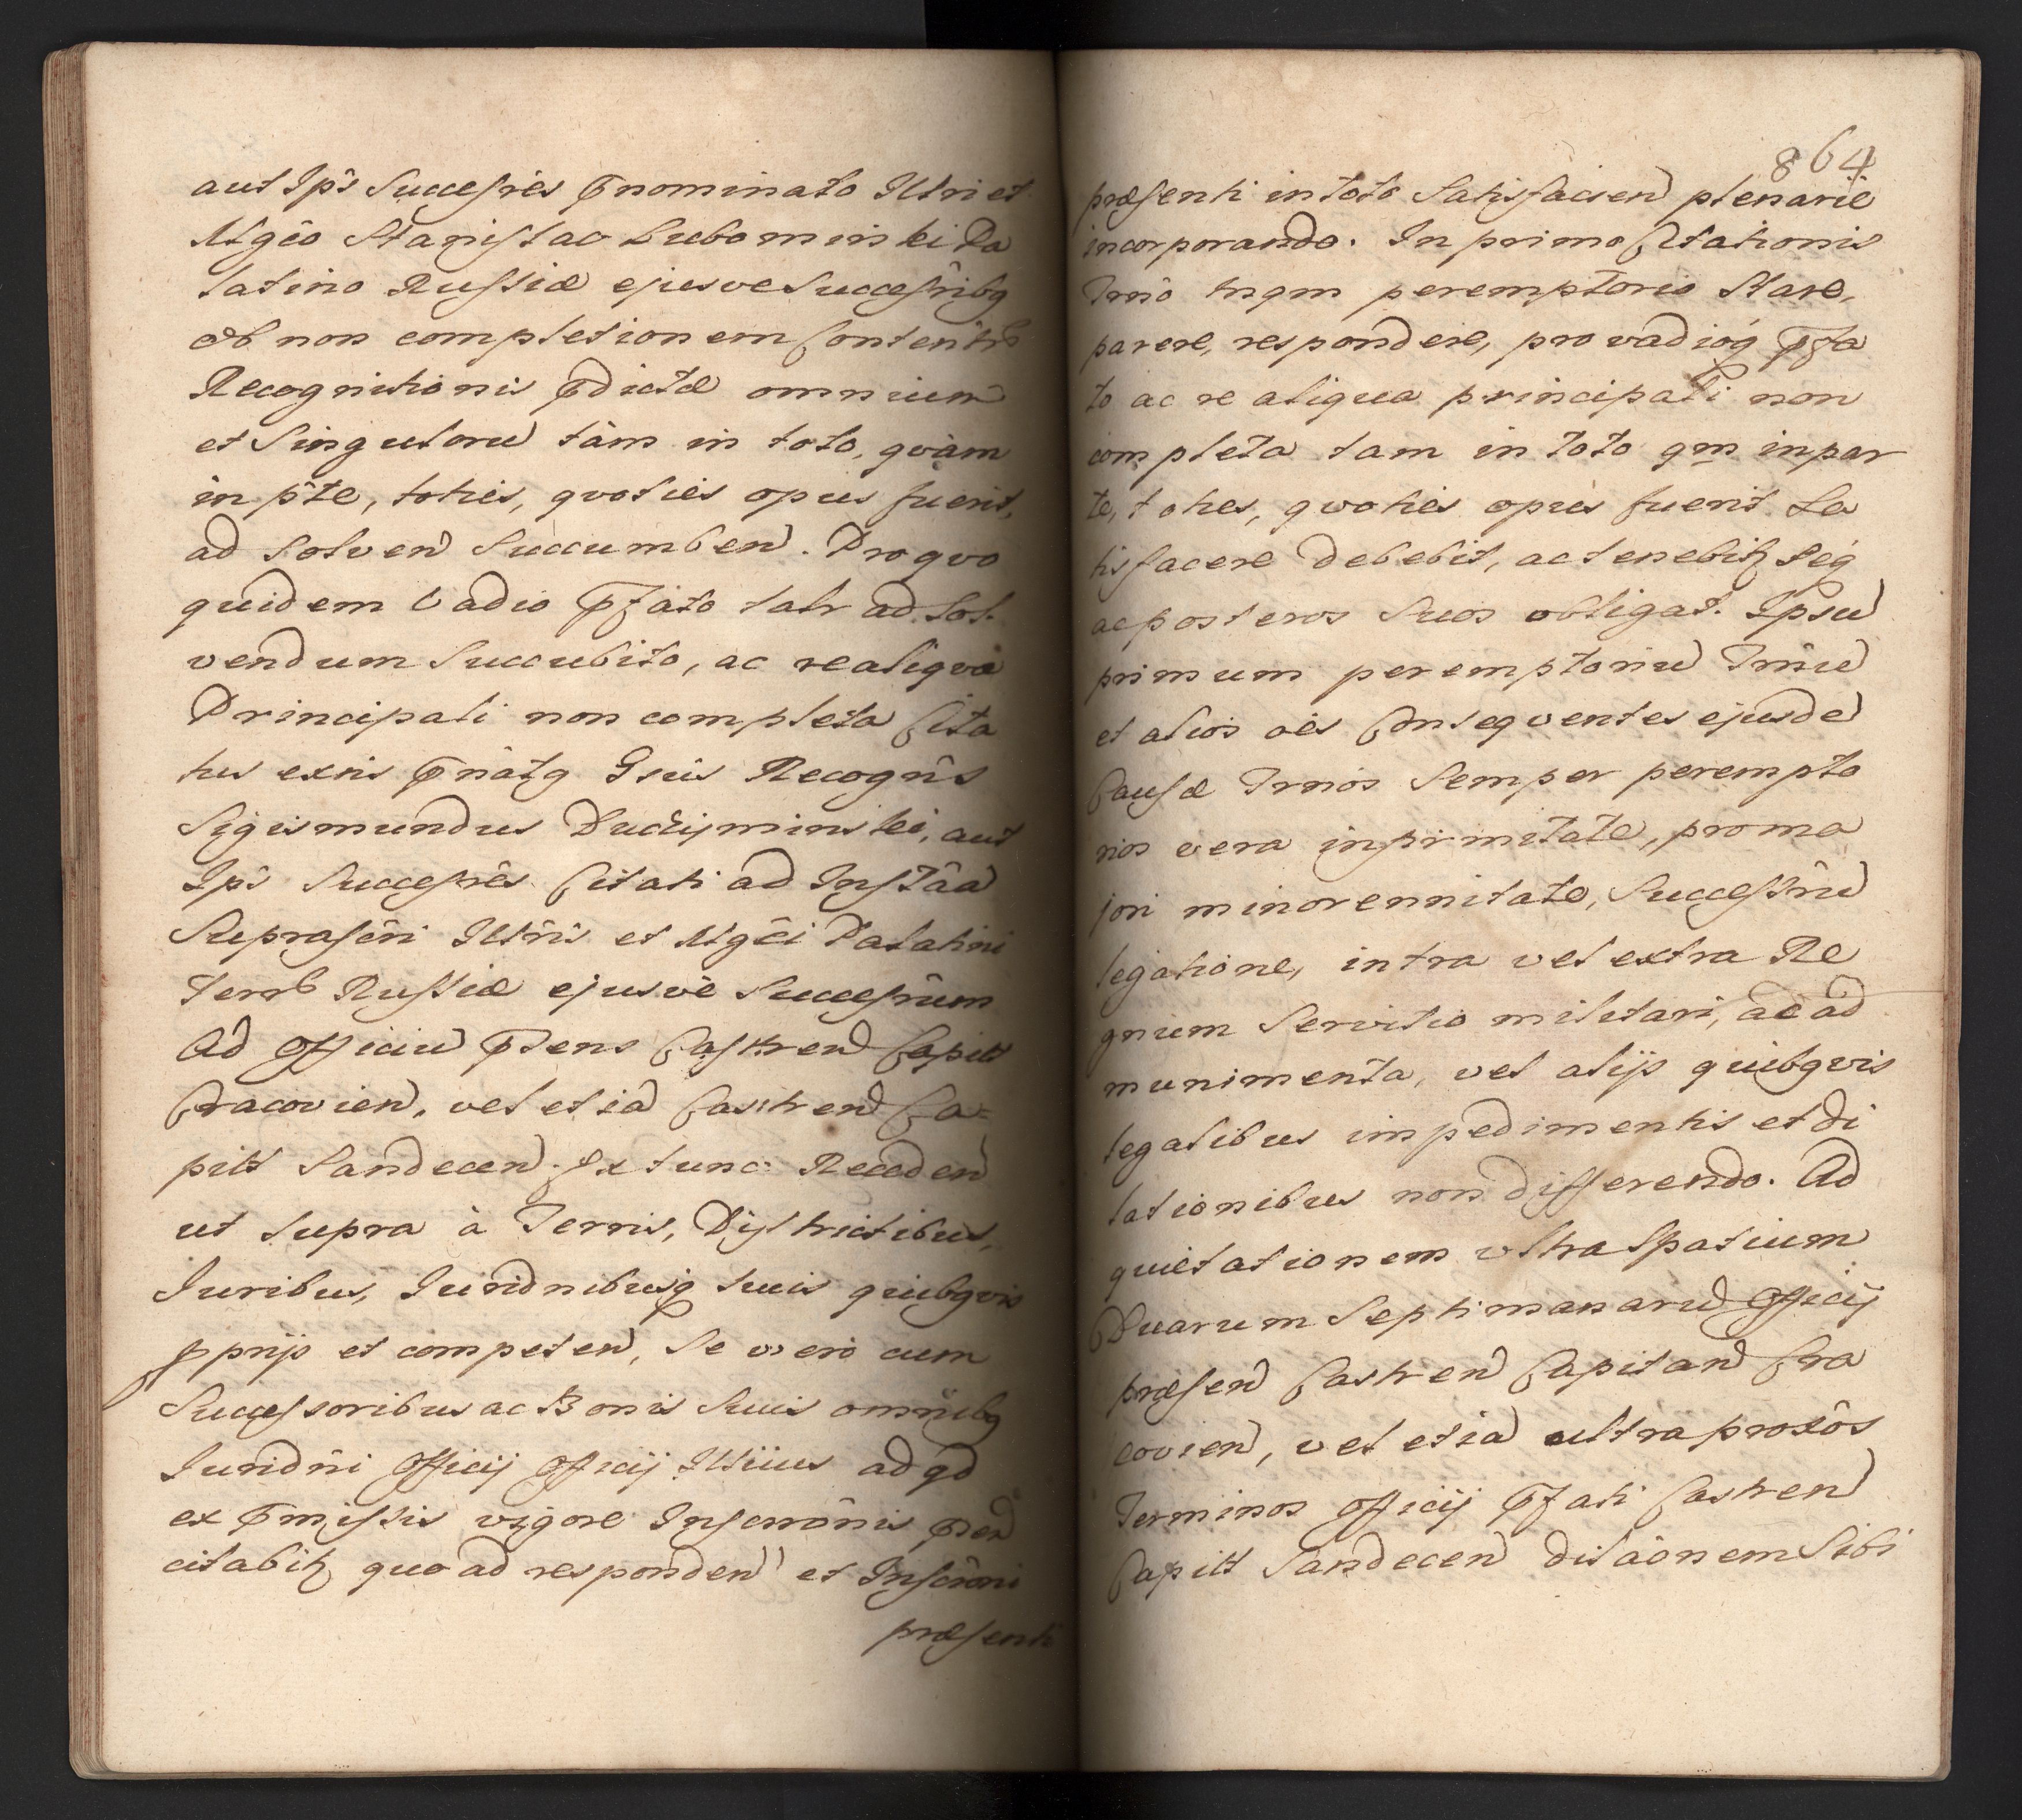 aut Ipś Succeſrés p̄nominato Illri et
Mgco Staniſlao Lubominski Pa
latino Ruſſiæ ejusve Succeſribq
ob non completionem Contentrb
Recognitionis p̄dictæ omnium
et Singulorū tàm in toto, qvàm
in pte, toties, qvoties opus fuerit,
ad Solvend Succumbend. Pro qvo
quidem Vadio p̄fato talr ad Sol-
vendum Succubito, ac re aliqva
Principali non completa Cita
tus exnis p̄natq Gsus Recogns
Sigismundus Duczyminski, aut
Ipś Succeſrés Citati ad Inſtâa
Supraſcri Illris et Mgci Palatini
Terrb Ruſſiæ ejusve Succeſrum
Ad Officiū p̄sens Caſtren Capitt
Cracovien, vel etiā Castren Ca=
pitt Sandecen. Extunc Receden
ut Supra à Terris, Diſtrictibus,
Juribus, Juridnibusq suis quibqvis
pprijs et competen, Se vero cum
Succeſsoribus ac Bonis Suis omnibq
Juridni Officij Officij Illius ad qd
ex p̄miſsis vigore Inſcronis p̄sen
citabitr quo ad responden et Inſcroni
præſenti
864
præſenti in toto Satisfacien plenarie
incorporando. In primo Citationis
Trno tnqm peremptorio Stare,
parere, respondere, pro vadioq p̄fa
to ac re aliqua principali non
completa tam in toto qm in par
te, toties, qvoties opus fuerit Sa
tisfacere debebit, ac tenebitr Seq
ac posteros Suos obligat. Ipsū
primum peremptoriū Trnū
et alios oes Conseqventes ejusdē
Cauſæ Trnos Semper perempto
rios vera infirmitate, pro ma
jori minorennitate, Succeſſrū
legatione, intra vel extra Re
gnum Servitio militari, ac ad
munimenta, vel alijs quibqvis
legalibus impedimentis et di
lationibus non differendo. Ad
quietationem ultra Spatium
Duarum Septimanarū Officij
præſen Castren Capitan Cra
covien, vel etiā ultra proxos
Terminos Officij p̄fati Castren
Capitt Sandecen dilaonem Sibi